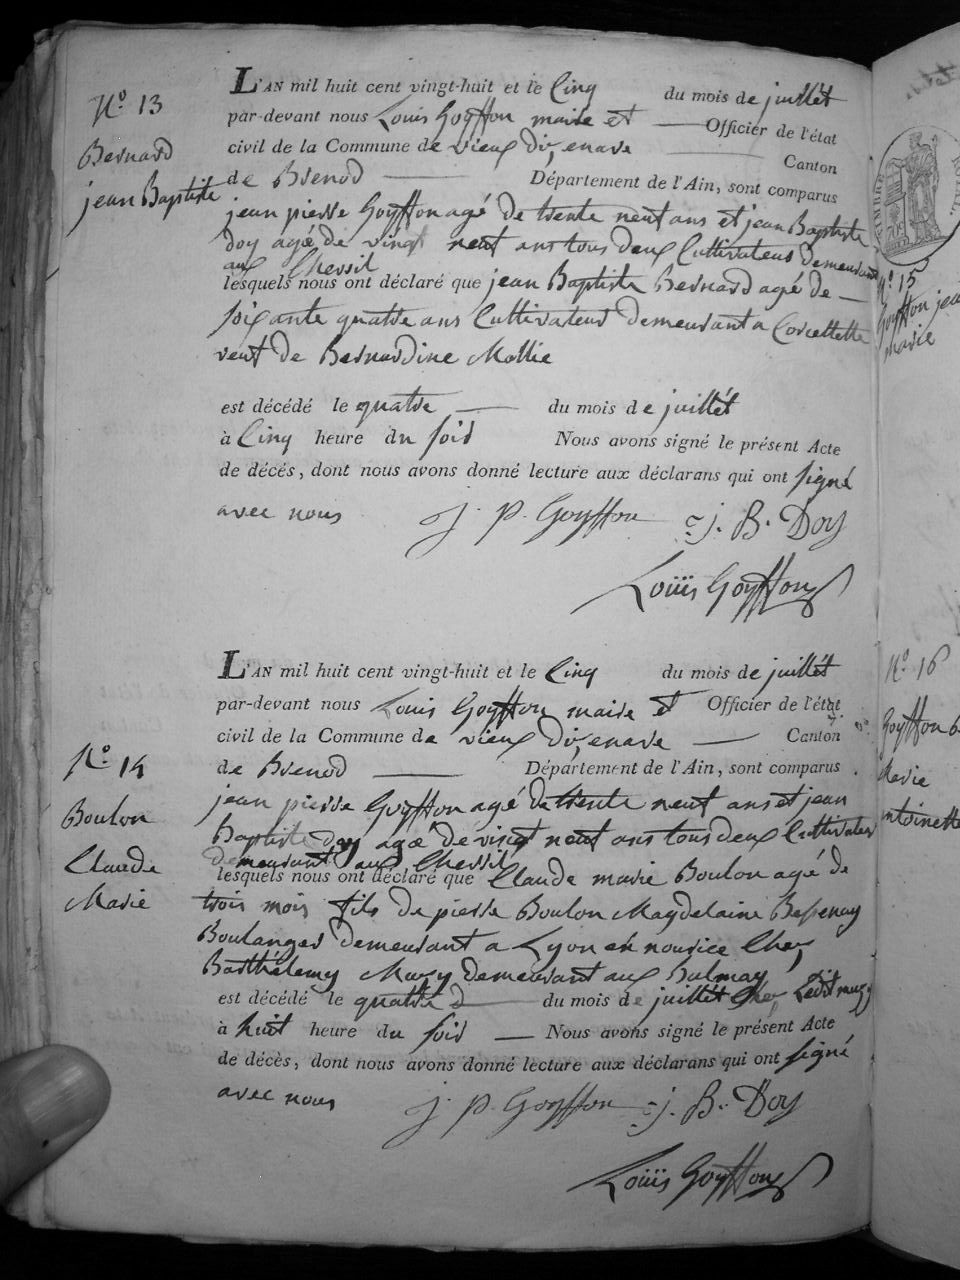 N.o 13
Bernard
jean Baptiste
L'AN mil huit cent vingt-huit et le Cinq du mois de juillet
par-devant nous Louis Goyffon maire et Officier de l'état
civil de la Commune de vieux d'izenave Canton
de Brenod Département de l'Ain, sont comparus
jean pierre Goyffon agé de trente neuf ans et jean Baptiste
Doy agé de vingt neuf ans tous deux Cultivateurs demeurant
aux Chevril
lesquels nous ont déclaré que jean Baptiste Bernard agé de
soixante quatre ans Cultivateur demeurant a Corcellette
veuf de Bernardine Mollie
est décédé le quatre du mois de juillet
à Cinq heure du soir Nous avons signé le présent Acte
de décès, dont nous avons donné lecture aux déclarans qui ont signé
avec nous J. P. Goyffon J. B. Doy
Louis Goyffon
N.o 14
Boulon
Claude
Marie
L'AN mil huit cent vingt-huit et le Cinq du mois de juillet
par-devant nous Louis Goyffon maire et Officier de l'état
civil de la Commune de vieux d'izenave Canton
de Brenod Département de l'Ain, sont comparus
jean pierre Goyffon agé de trente neuf ans et jean
Baptiste doy agé de vingt neuf ans tous deux Cultivateur
demeurant aux Chevril
lesquels nous ont déclaré que Claude marie Boulon agé de
trois mois fils de pierre Boulon Magdelaine Bessenay
Boulanger demeurant a Lyon en nourice Chez
Barthélemy Mugy demeurant aux Balmay
est décédé le quatre du mois de juillet Chez Ledit mugy
à huit heure du soir Nous avons signé le présent Acte
de décès, dont nous avons donné lecture aux déclarans qui ont signé
avec nous J. P. Goyffon J. B. Doy
Louis Goyffon
TIMBRE
N.o 15
Goyffon jea
marie
N.o 16
Goyffon
Marie
ntoinette